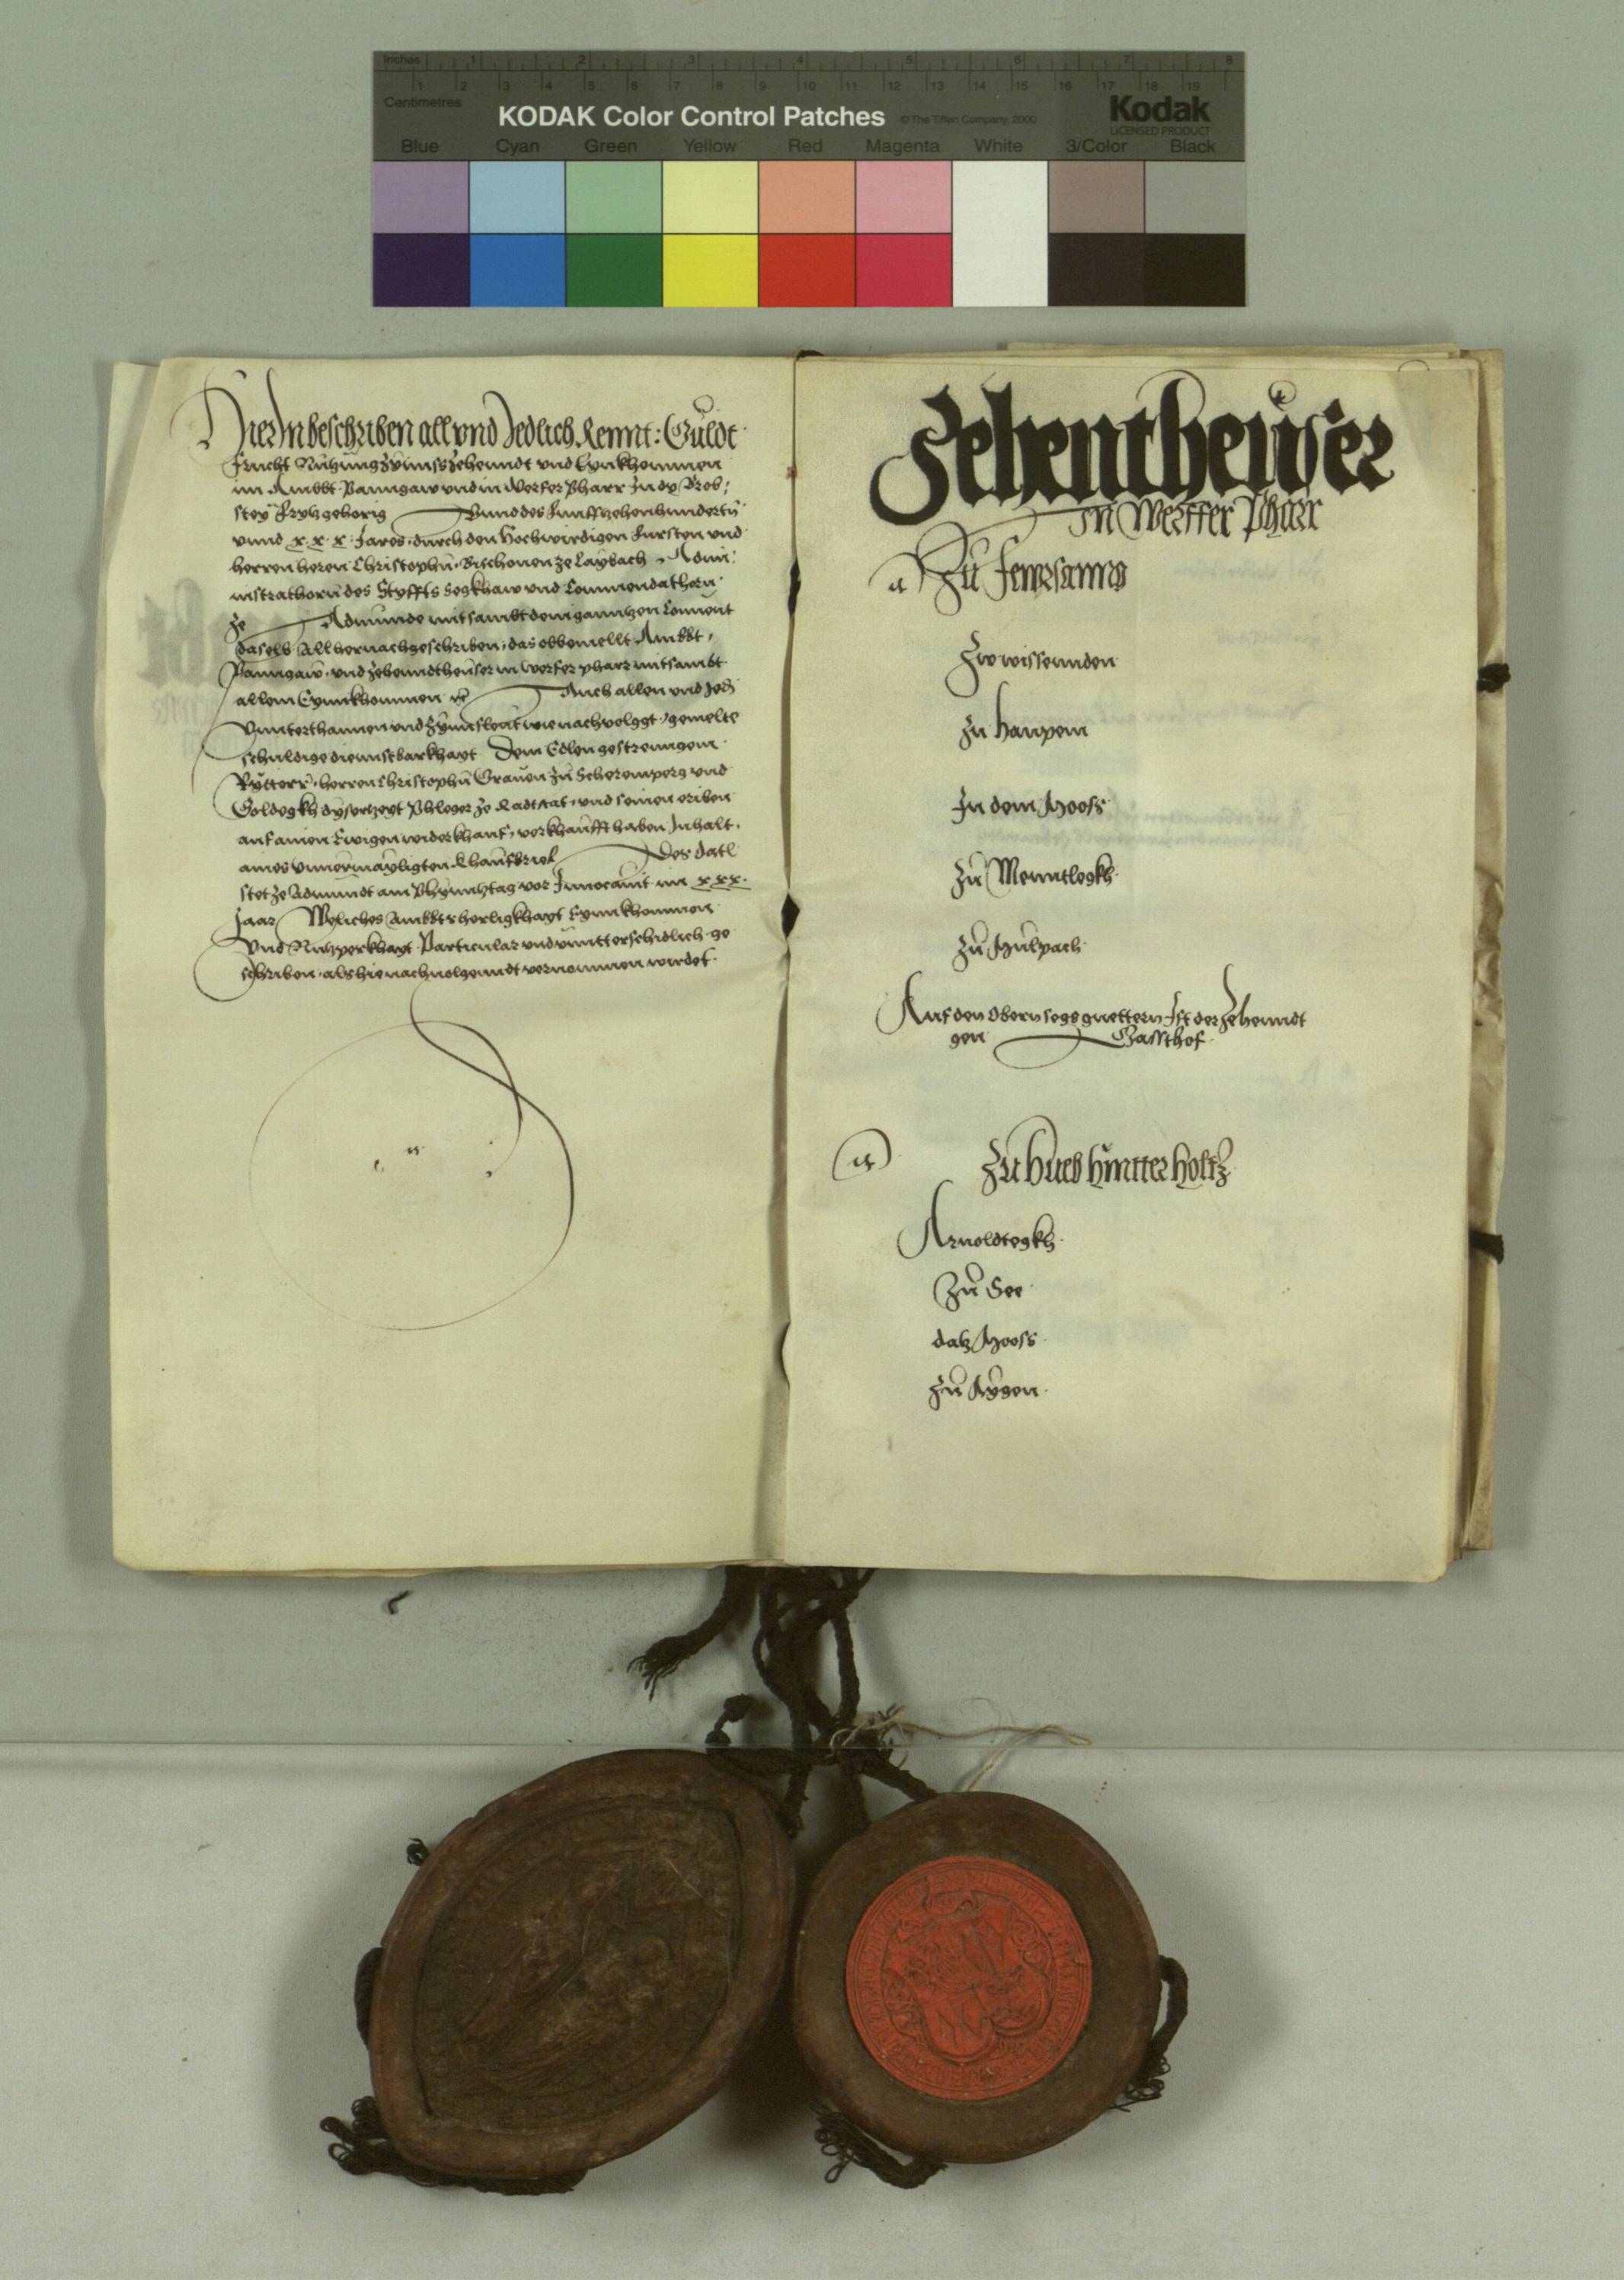 Inches 1 2 3 4 5 6 7 8
Centimetres 1 2 3 4 5 6 7 8 9 10 11 12 13 14 15 16 17 18 19
KODAK Color Control Patches © The Tiffen Company, 2000 Kodak
LICENSED PRODUCT
Blue Cyan Green Yellow Red Magenta White 3/Color Black
Hierin beschriben all vnd Jedlich Rennt: Guldt
Frucht Nutzung Zynnss Zehenndt vnd Eynkhommen
im Ambbt Panngaw vnd in Werfer Pharr In dy Brob:
stey Frytz gehorig Vnnd des Funffzehenhunderten
vnnd x.x.x. Jares durch den Hochwirdigen Fursten vnd
herren heren Christophn Bischouen ze Laybach Admi:
nistrathorn des Styffts Segkhaw vnd Commendathorn
ze Admunde mit sambt dem ganntzen Conuent
daselb All hernach geschriben, das obbemellt Ambbt
Panngaw vnd Zehenndtheuser in Werfer pharr mit sambt
allem Eynnkhommen Auch allen vnd Jedn
Vnnterthannen vnd Zynnsleut wie nachvolggt, gemelte
schuldige diennstbarkhayt Dem Edlen gestrenngem
Ryttern herren Christophn Grauen zu Schernperg vnd
Goldegkh dyser zeyt Phleger ze Radstat, vnd seinen eriben
auf ainen Ewigen widerkhauf, verkhaufft haben Inhalt
aines vnuermayligten Khaufbrief Des datl
stet ze Admundt am Phynnztag vor Inuocauit im xxx.
Jaar Weliches Ambbts herligkhayt Eynnkhommen
vnd Nutzperkhayt Particular vnd vnntterschidlich ge
schriben als hienachuolgenndt vernommen wirdet
Zehentheuser
in Werffer Pharr
Zu Fewrsanng
Zwwissennden
Zu Haupem
In dem Moss
Zu Menntlegkh
Zu Mulpach
Auf den obern segs guettern Ist der Zehenndt
gen Gassthof
Zu Hueb hinntter holtz
Arnoldtegkh
Zu See
datz Moss
Zu Aygen